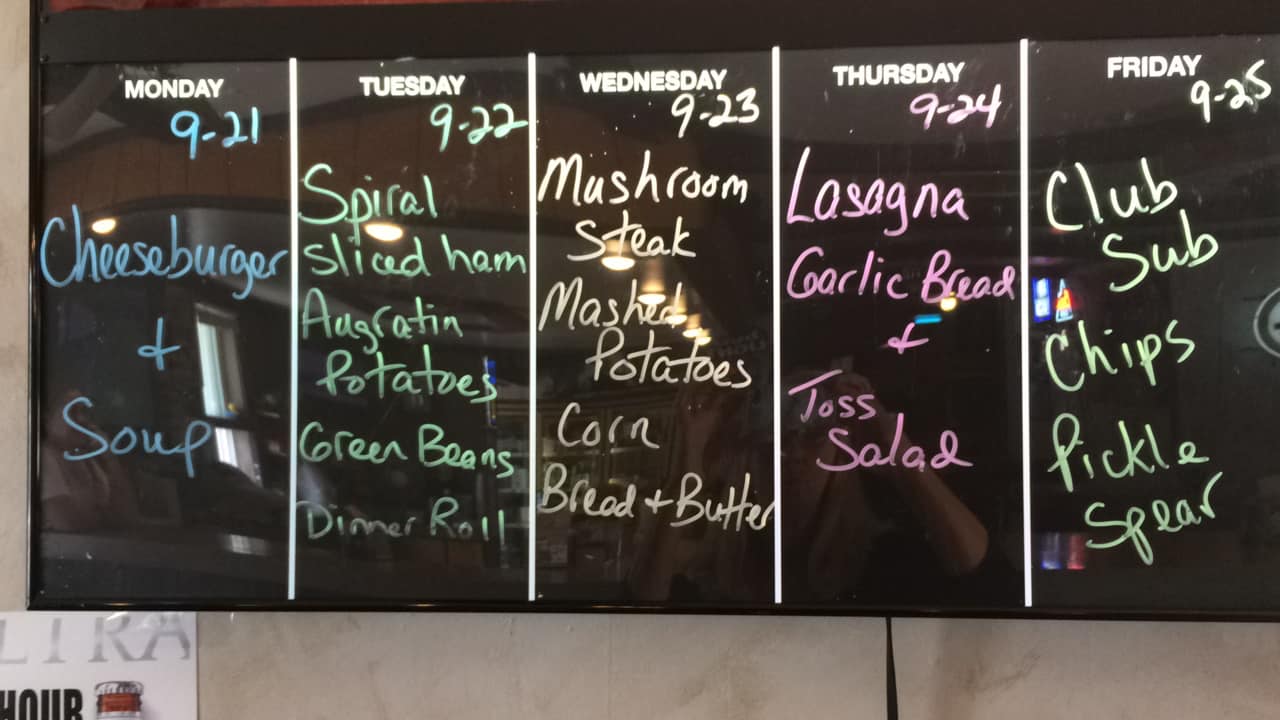 MONDAY
9-21
Cheeseburger
+
Soup
TUESDAY
9-22
Spiral
sliced ham
Augratin
Potatoes
Green Beans
Dinner Roll
WEDNESDAY
9-23
Mushroom
Steak
Mashed
Potatoes
Corn
Bread + Butter
THURSDAY
9-24
Lasagna
Garlic Bread
+
Toss
Salad
FRIDAY
9-25
Club
Sub
Chips
Pickle
Spear
LTRA
HOUR